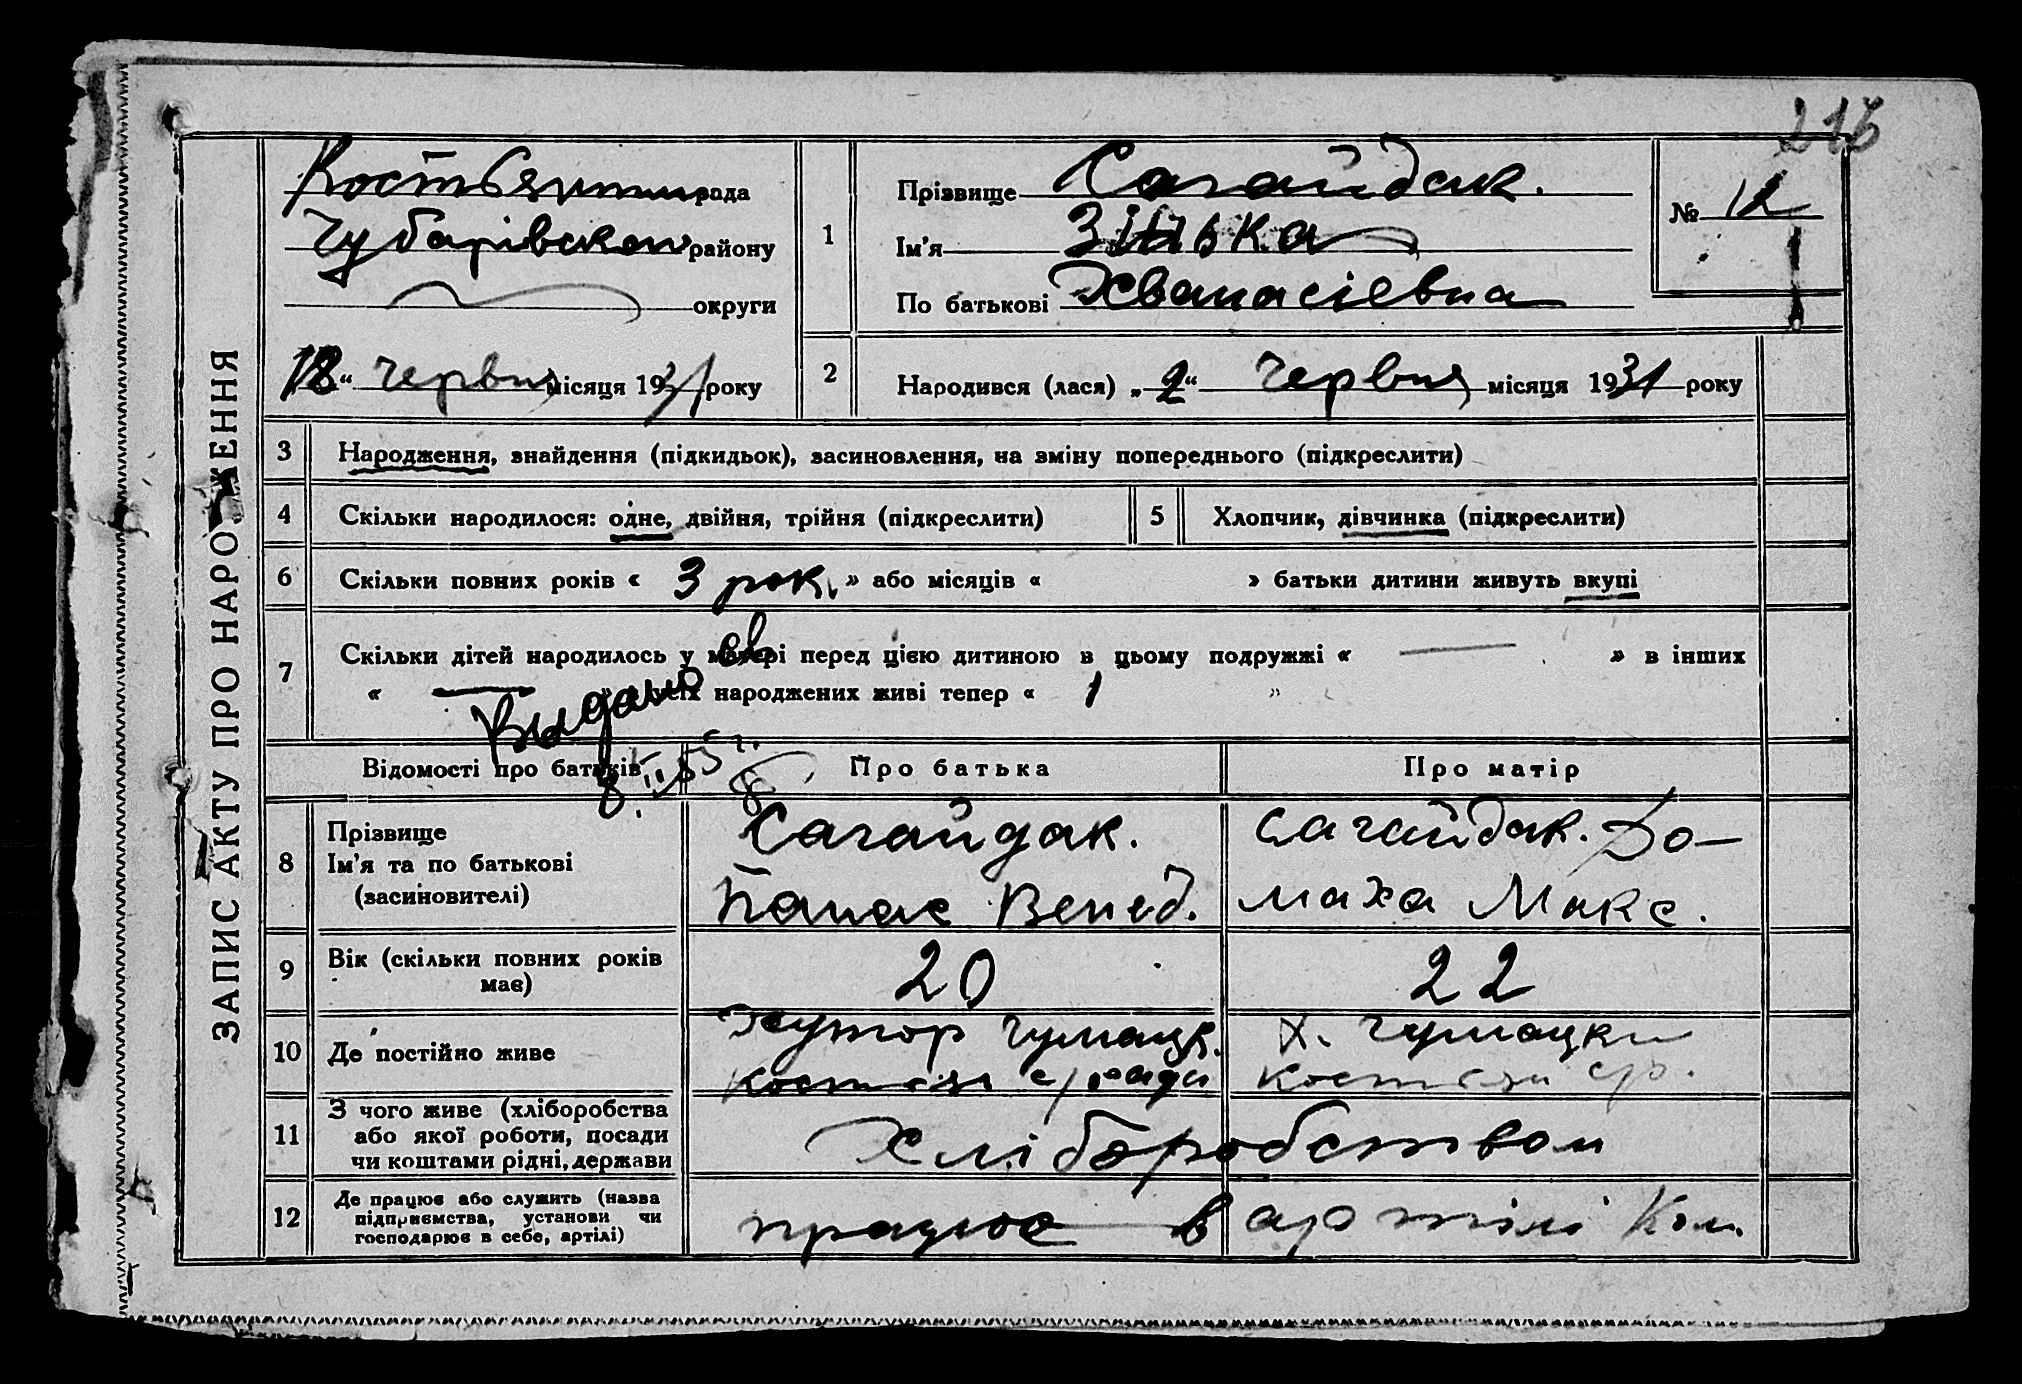 ЗАПИС АКТУ ПРО НАРОДЖЕННЯ
рада
Чубарівського району
округи
18 “ червня місяця 1931 року
№ 12
1
Прізвище Сагайдак.
Ім’я Зінька
По батькові Хванасіевна
2
Народився (лася) „ 2 “ червня місяця 1931 року
3 Народження, знайдення (підкидьок), засиновлення, на зміну попереднього (підкреслити)
4 Скільки народилося: одне, двійня, трійня (підкреслити)
5 Хлопчик, дівчинка (підкреслити)
6 Скільки повних років « 3 рок. » або місяців « » батьки дитини живуть вкупі
7 Скільки дітей народилось у матері перед цією дитиною в цьому подружжі « — » в інших
« — » усіх народжених живі тепер « 1 »
Видано св
Відомості про батьків
Про батька
Про матір
8 Прізвище
Ім’я та по батькові
(засиновителі)
Сагайдак.
Панас Венед.
Сагайдак. До–
маха Макс.
9 Вік (скільки повних років
має)
20
22
10 Де постійно живе
Хутор Чумацк.
Х. Чумацки
11 З чого живе (хліборобства
або якої роботи, посади
чи коштами рідні, держави
Хліборобством
12 Де працює або служить (назва
підприємства, установи чи
господарює в себе, артілі)
працює в артілі